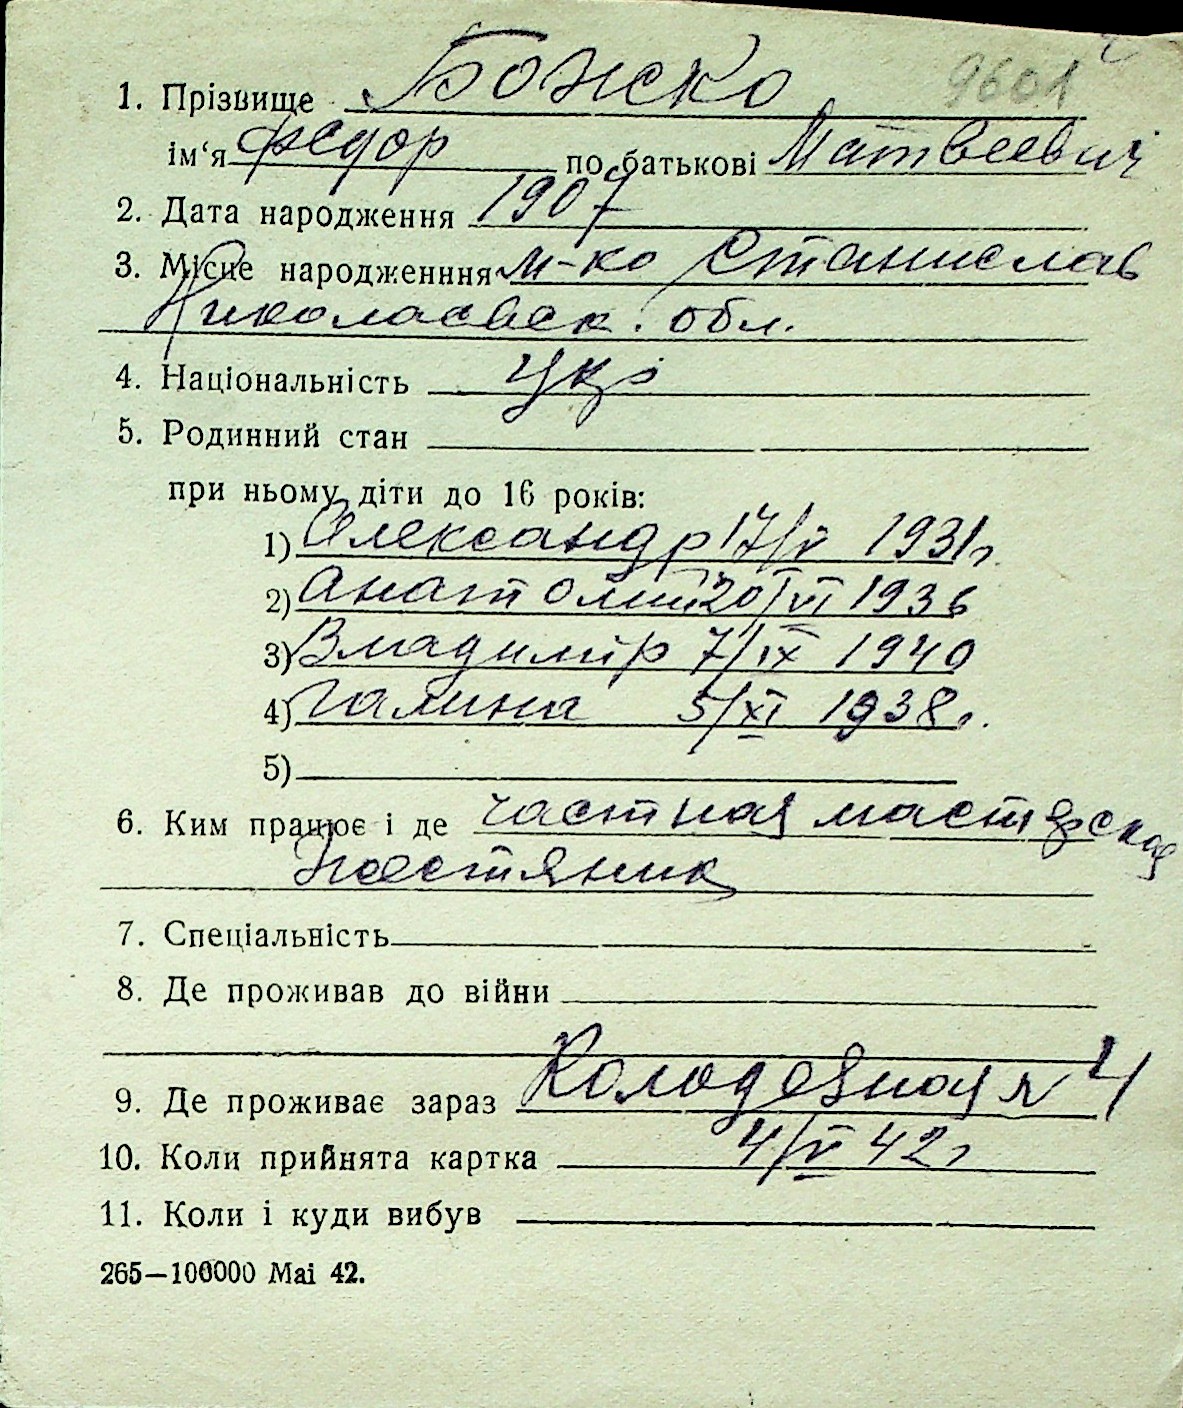 9601
1. Прізвище Божко
ім'я Федор по батькові Матвеевич
2. Дата народження 1907
3. Місце народженння м-ко Станислав
Николаевск. обл.
4. Національність Укр
5. Родинний стан
при ньому діти до 16 років:
1) Александр 17/V 1931г.
2) Анатолий 20/VI 1936
3) Владимир 7/IX 1940
4) Галина 5/XI 1938г.
5)
6. Ким працює і де частная мастерская
жестяник
7. Спеціальність
8. Де проживав до війни
9. Де проживає зараз Колодезная № 4
10. Коли прийнята картка 4/V 42г
11. Коли і куди вибув
265—100000 Mai 42.